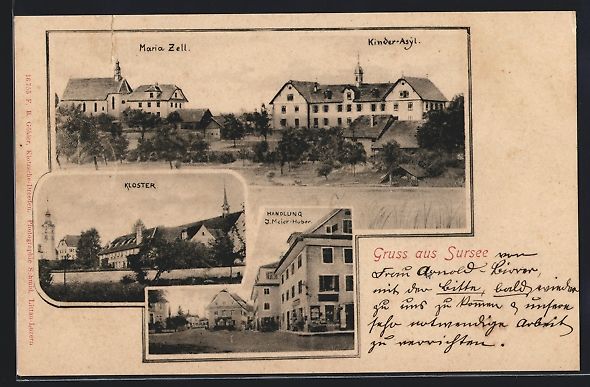 Maria Zell.
Kinder-Asyl.
KLOSTER
HANDLUNG
J. Meier-Huber.
Gruss aus Sursee von
Frau Arnold-
mit der bitte, bald wieder
zu uns zu kommen & unsere
sehr notwendige Arbeit
zu verrichten.
16755 F. B. Göhler, Dresden. Photographie Schmid, Luzern.